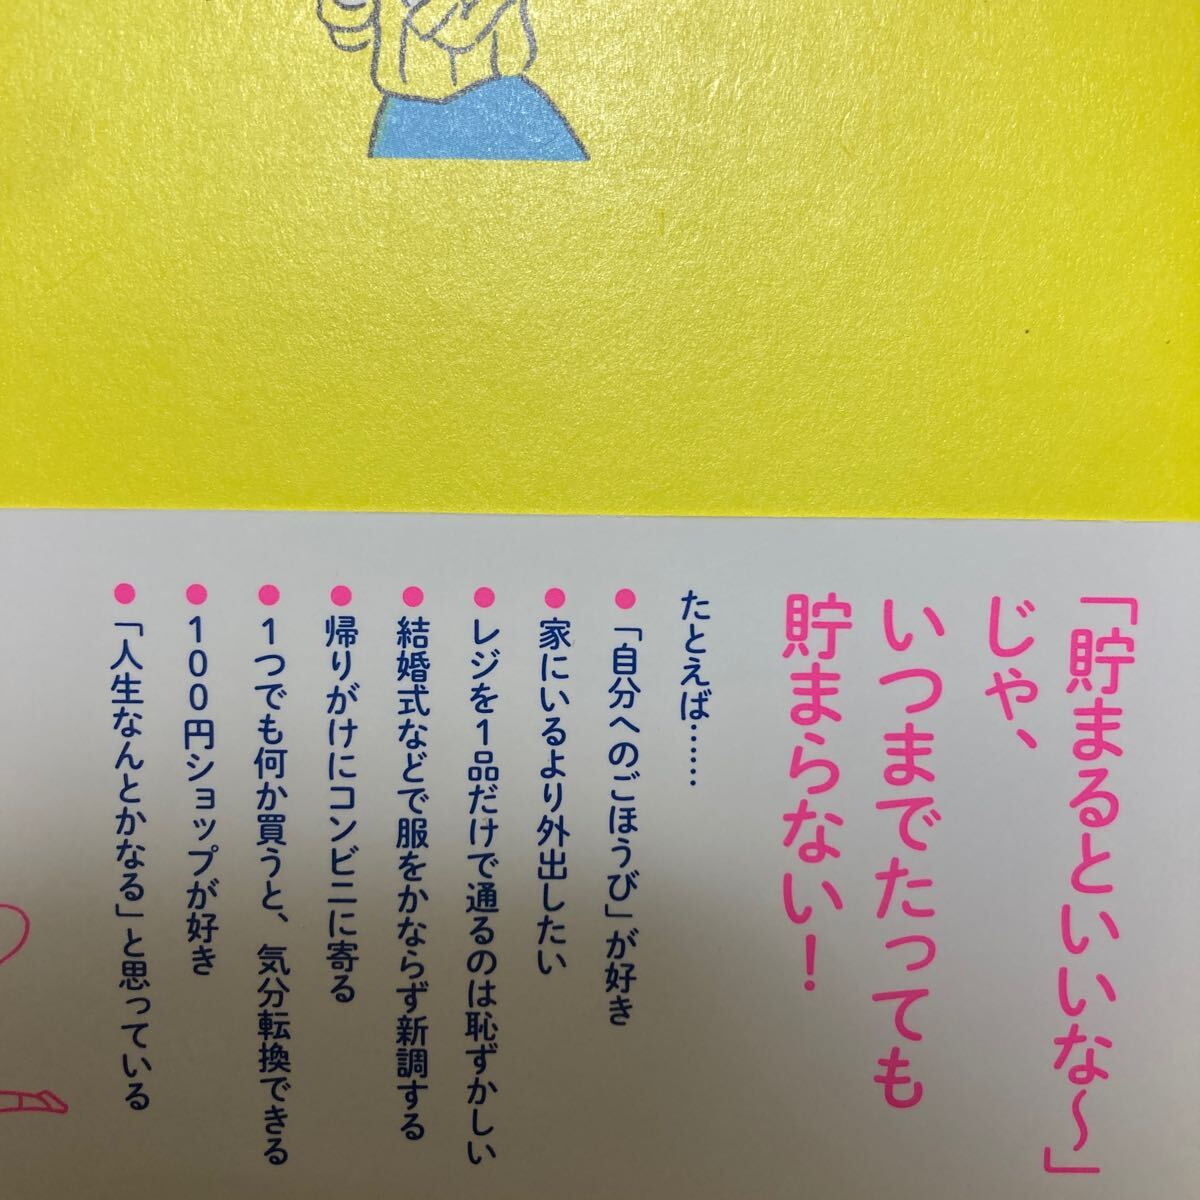 「貯まるといいな〜」
じゃ、
いつまでたっても
貯まらない！
たとえば……
●「自分へのごほうび」が好き
●家にいるより外出したい
●レジを1品だけで通るのは恥ずかしい
●結婚式などで服をかならず新調する
●帰りがけにコンビニに寄る
●1つでも何か買うと、気分転換できる
●100円ショップが好き
●「人生なんとかなる」と思っている